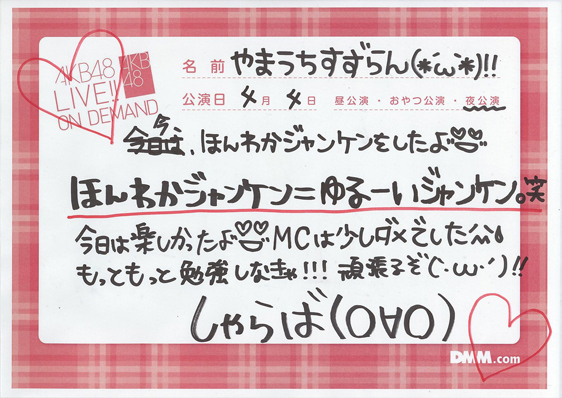 AKB48
LIVE!!
ON DEMAND
AKB
48
名前 やまうちすずらん(*´ω`*)!!
公演日 4月 4日 昼公演・おやつ公演・夜公演
今
今日は、ほんわかジャンケンをしたよ
ほんわかジャンケン=ゆるーいジャンケン。笑
今日は楽しかったよ MCは少しダメでした
もっともっと勉強しなきゃ!!! 頑張るぞ(`・ω・´)!!
しゃらば(O∀O)
DMM.com